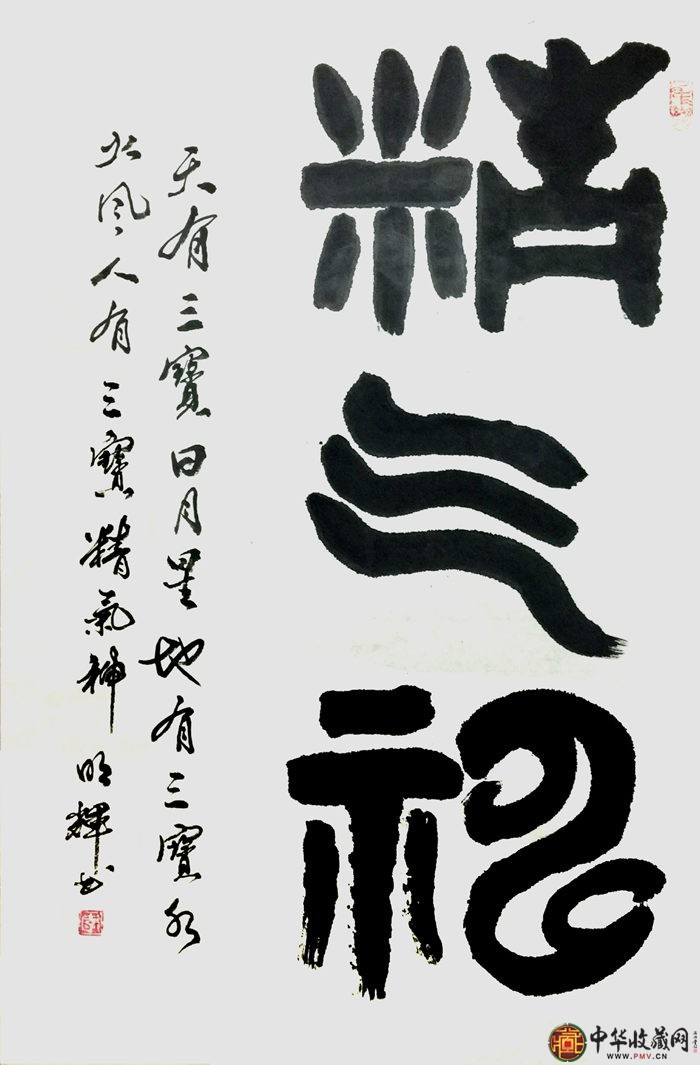 精气神
天有三寳日月星地有三寳水
火風人有三寳精氣神明輝书
中华收藏网
WWW.PMV.CN